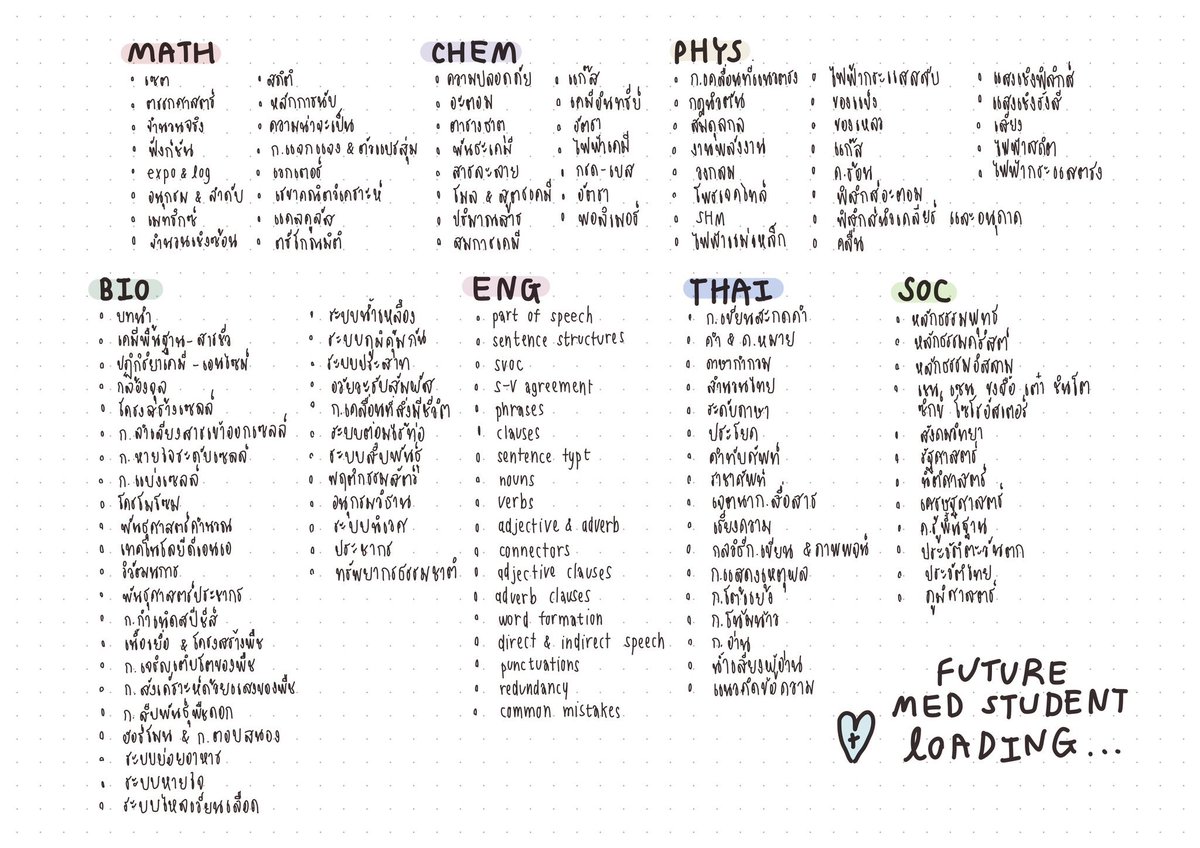 MATH
เซต
ตรรกศาสตร์
จำนวนจริง
ฟังก์ชัน
expo & log
อนุกรม & ลำดับ
เมทริกซ์
จำนวนเชิงซ้อน
สถิติ
หลักการนับ
ความน่าจะเป็น
ก.แจกแจง & ตัวแปรสุ่ม
เวกเตอร์
เรขาคณิตวิเคราะห์
แคลคูลัส
ตรีโกณมิติ
CHEM
ความปลอดภัย
อะตอม
ตารางธาตุ
พันธะเคมี
สารละลาย
โมล & สูตรเคมี
ปริมาณสาร
สมการเคมี
แก๊ส
เคมีอินทรีย์
อัตรา
ไฟฟ้าเคมี
กรด-เบส
อัตรา
พอลิเมอร์
PHYS
ก.เคลื่อนที่แนวตรง
กฎนิวตัน
สมดุลกล
งานพลังงาน
วงกลม
โพรเจคไทล์
SHM
ไฟฟ้าแม่เหล็ก
ไฟฟ้ากระแสสลับ
ของแข็ง
ของเหลว
แก๊ส
ค.ร้อน
ฟิสิกส์อะตอม
ฟิสิกส์นิวเคลียร์ และอนุภาค
คลื่น
แสงเชิงฟิสิกส์
แสงเชิงรังสี
เสียง
ไฟฟ้าสถิต
ไฟฟ้ากระแสตรง
BIO
บทนำ
เคมีพื้นฐาน-สารชีว
ปฏิกิริยาเคมี-เอนไซม์
กล้องจุล
โครงสร้างเซลล์
ก.ลำเลียงสารเข้าออกเซลล์
ก.หายใจระดับเซลล์
ก.แบ่งเซลล์
โครโมโซม
พันธุศาสตร์คำนวณ
เทคโนโลยีดีเอนเอ
วิวัฒนาการ
พันธุศาสตร์ประชากร
ก.กำเนิดสปีชีส์
เนื้อเยื่อ & โครงสร้างพืช
ก.เจริญเติบโตของพืช
ก.สังเคราะห์ด้วยแสงของพืช
ก.สืบพันธุ์พืชดอก
ฮอร์โมน & ก.ตอบสนอง
ระบบย่อยอาหาร
ระบบหายใจ
ระบบไหลเวียนเลือด
ระบบน้ำเหลือง
ระบบภูมิคุ้มกัน
ระบบประสาท
อวัยวะรับสัมผัส
ก.เคลื่อนที่สิ่งมีชีวิต
ระบบต่อมไร้ท่อ
ระบบสืบพันธุ์
พฤติกรรมสัตว์
อนุกรมวิธาน
ระบบนิเวศ
ประชากร
ทรัพยากรธรรมชาติ
ENG
part of speech
sentence structures
svoc
s-v agreement
phrases
clauses
sentence typt
nouns
verbs
adjective & adverb
connectors
adjective clauses
adverb clauses
word formation
direct & indirect speech
punctuations
redundancy
common mistakes
THAI
ก.เขียนสะกดคำ
คำ & ค.หมาย
ภาษากำกวม
สำนวนไทย
ระดับภาษา
ประโยค
คำทับศัพท์
ราชาศัพท์
เจตนาก.สื่อสาร
เรียงความ
กลวิธีก.เขียน & ภาพพจน์
ก.แสดงเหตุผล
ก.โต้แย้ง
ก.โน้มน้าว
ก.อ่าน
น้ำเสียงผู้อ่าน
แนวคิดข้อความ
SOC
หลักธรรมพุทธ
หลักธรรมคริสต์
หลักธรรมอิสลาม
เชน เซน ขงจื๊อ เต๋า ชินโต
ซิกข์ โซโรอัสเตอร์
สังคมวิทยา
รัฐศาสตร์
นิติศาสตร์
เศรษฐศาสตร์
ค.รู้พื้นฐาน
ประวัติตะวันตก
ประวัติไทย
ภูมิศาสตร์
FUTURE
MED STUDENT
LOADING...